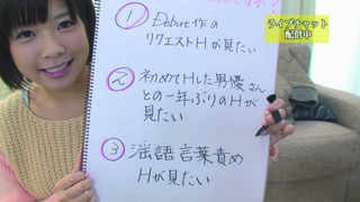 ライブチャット
配信中
① Debut作の
リクエストHが見たい
② 初めてHした男優さん
との一年ぶりのHが
見たい
③ 淫語言葉責め
Hが見たい